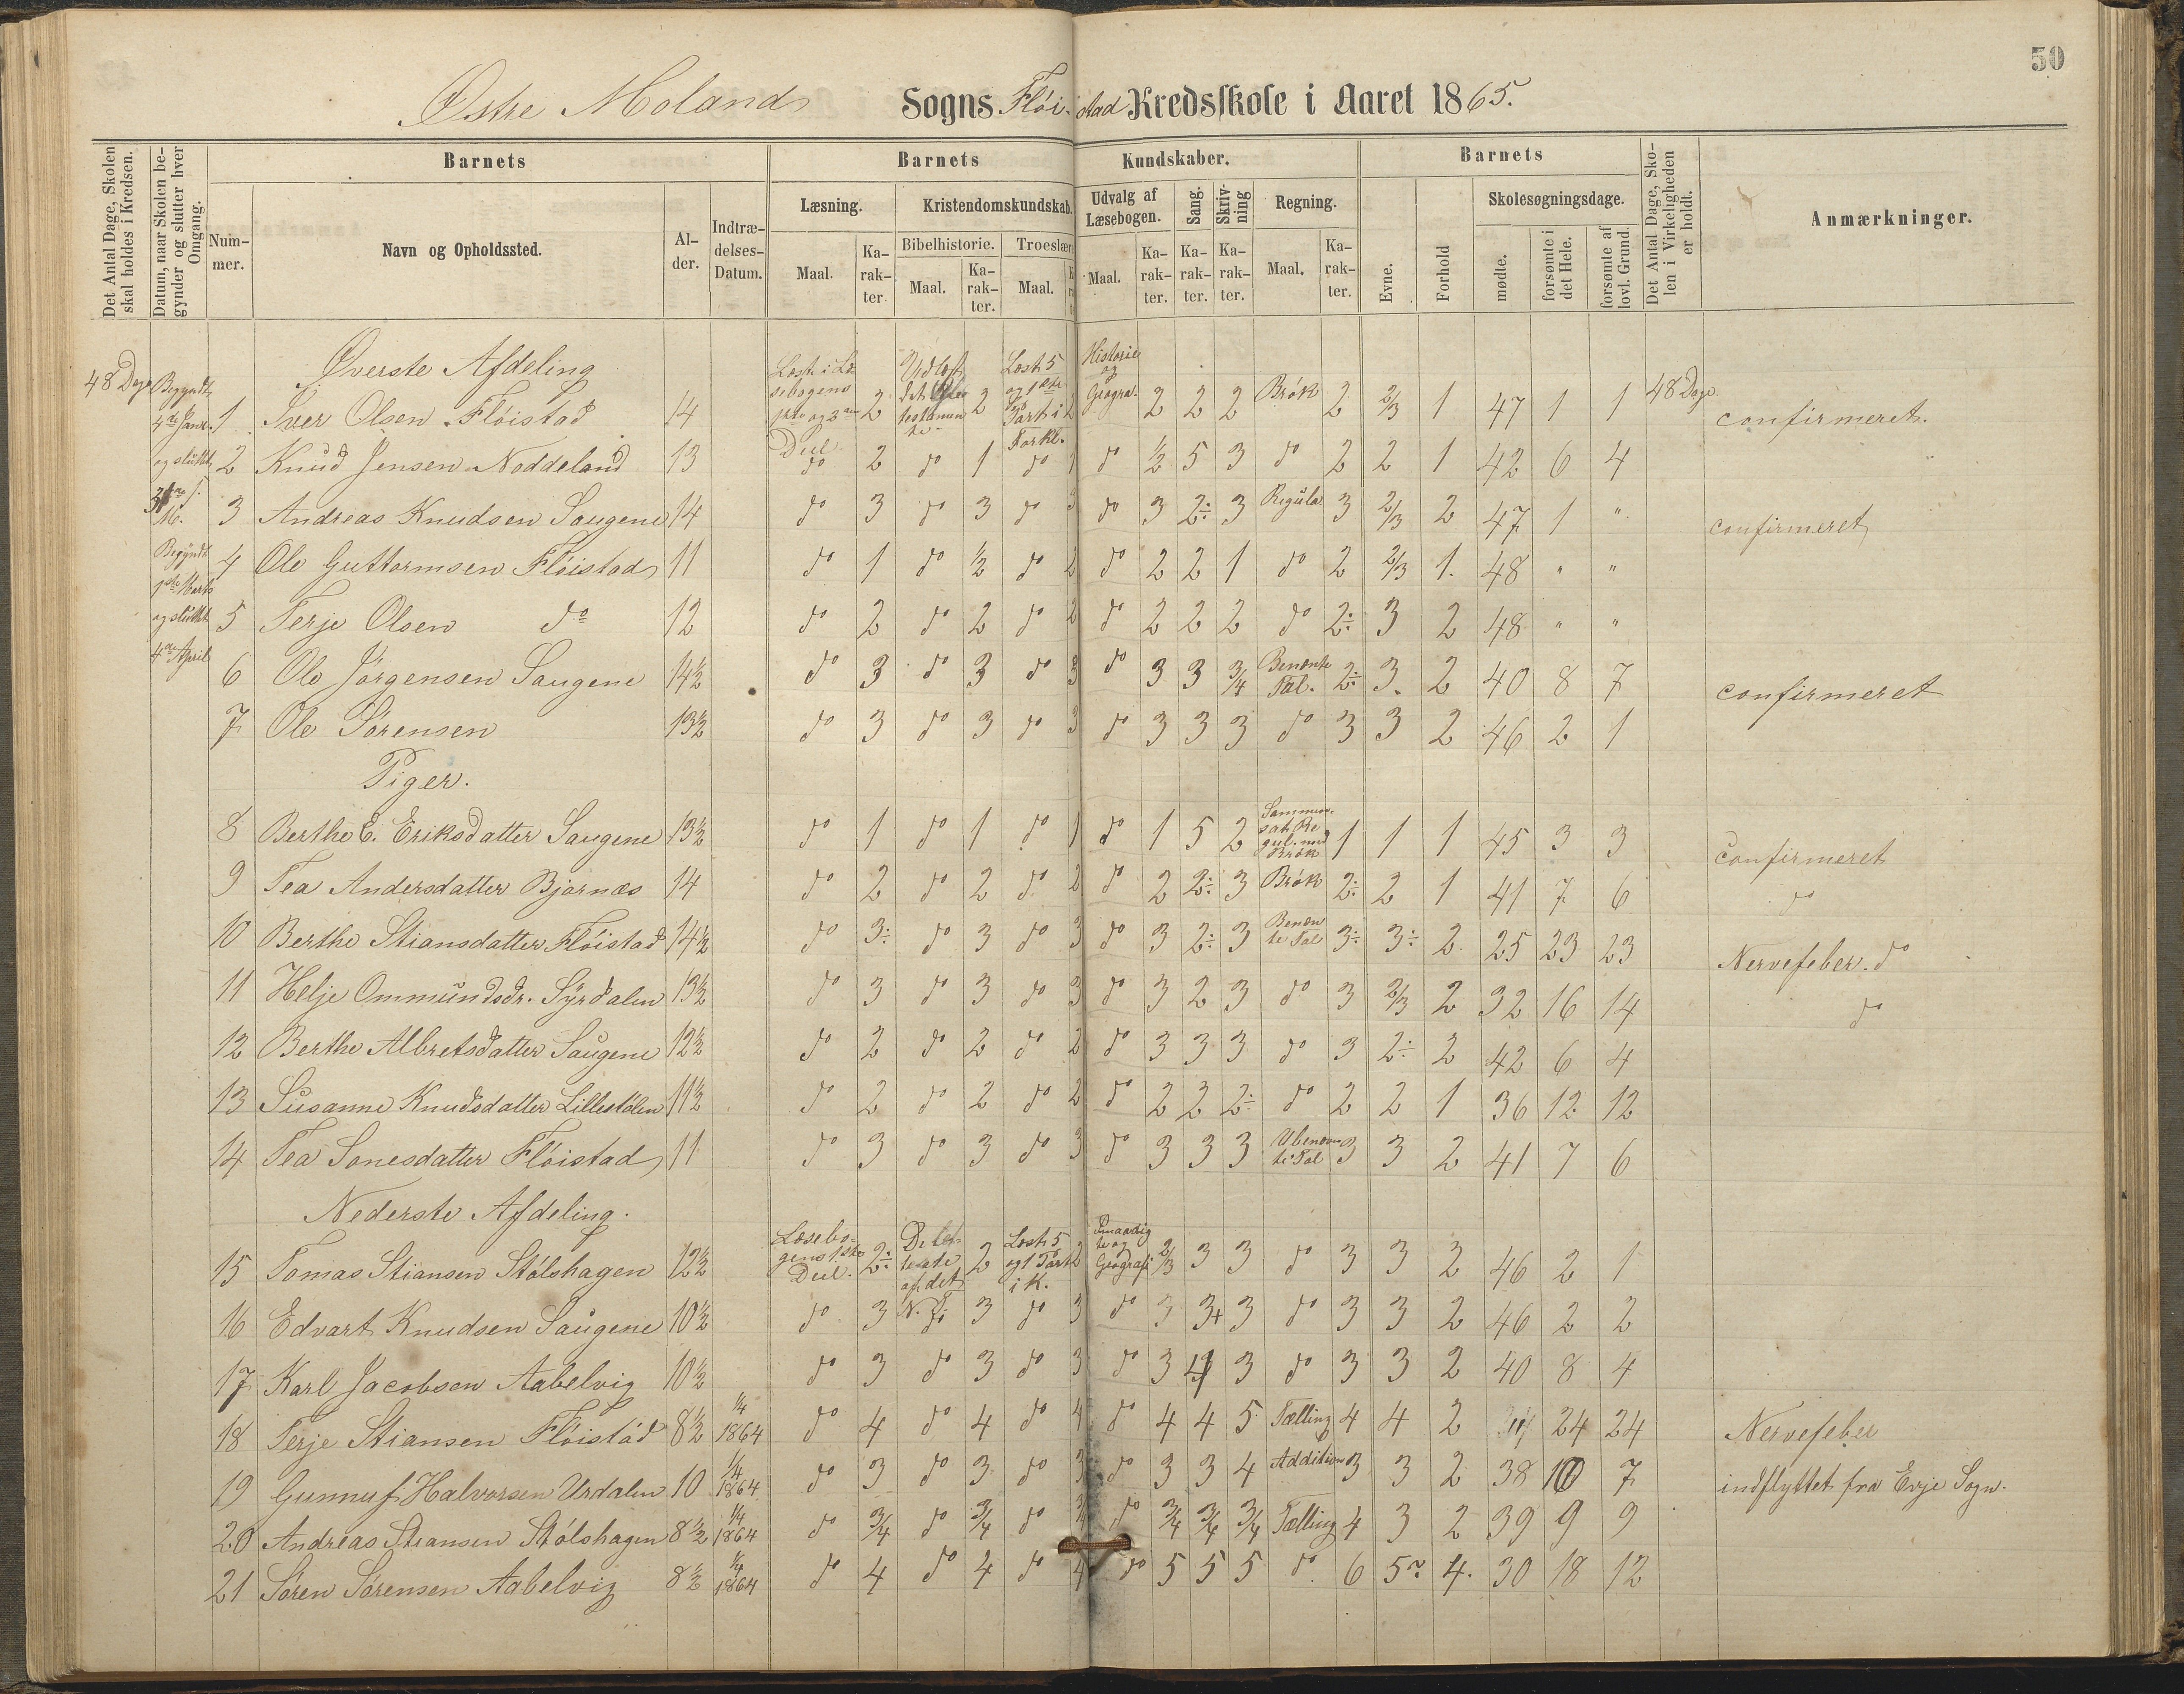 50
Østre Molands Sogns Flöistad Kredsskole i Aaret 1865.
Det Antal Dage, Skolen skal holdes i Kredsen.
Datum, naar Skolen begynder og slutter hver Omgang.
Barnets
Nummer.
Navn og Opholdssted.
Alder.
Indtrædelses-Datum.
Barnets Kundskaber.
Læsning.
Maal.
Karakter.
Kristendomskundskab.
Bibelhistorie.
Maal.
Karakter.
Troeslære
Maal.
Udvalg af Læsebogen.
Maal.
Karakter.
Sang.
Karakter.
Skrivning
Karakter.
Regning.
Maal.
Karakter.
Barnets
Evne.
Forhold
Skolesøgningsdage.
mødte.
forsømte i det Hele.
forsømte af lovl. Grund.
Det Antal Dage, Skolen i Virkeligheden er holdt.
Anmærkninger.
48 Dage
Begyndt 4de Janr. og sluttet 31te s. M.
Begyndt 1ste Marts og sluttet 4de April
Øverste Afdeling
1 Iver Olsen Flöistad 14 Læst i Læsebogens 1ste og 2den Deel 2 2 2 Historie og Geogra. 2 2 2 Brök 2 2/3 1 47 1 1 48 Dage confirmeret.
2 Knud Jensen Noddeland 13 do 2 do 1 do 1 do ½ 5 3 do 2 2 1 42 6 4
3 Andreas Knudsen Saugene 14 do 3 do 3 do 3 do 3 2÷ 3 Regula 3 2/3 2 47 1 " confirmeret
4 Ole Guttormsen Flöistad 11 do 1 do ½ do 2 do 2 2 1 do 2 2/3 1. 48 " "
5 Terje Olsen do 12 do 2 do 2 do 2 do 2 2 2 do 2÷ 3 2 48 " "
6 Ole Jörgensen Saugene 14½ do 3 do 3 do 3 do 3 3 3/4 Benævnte Tal. 2÷ 3. 2 40 8 7 confirmeret
7 Ole Sörensen 13½ do 3 do 3 do 3 do 3 3 3 do 3 3 2 46 2 1
Piger.
8 Berthe E. Eriksdatter Saugene 13½ do 1 do 1 do 1 do 1 5 2 Sammensat Regul. med Brök 1 1 1 45 3 3 confirmeret
9 Tea Andersdatter Bjornæs 14 do 2 do 2 do 2 do 2 2÷ 3 Brök 2÷ 2 1 41 7 6 do
10 Berthe Stiansdatter Flöistad 14½ do 3÷ do 3 do 3 do 3 2÷ 3 Benævnte Tal 3÷ 3÷ 2. 25 23 23 Nervefeber. do
11 Helje Ommundsdr. Syrdalen 13½ do 3 do 3 do 3 do 3 2 3 do 3 2/3 2 32 16 14 do
12 Berthe Albretsdatter Saugene 12½ do 2 do 2 do 2 do 3 3 3 do 3 2÷ 2 42 6 4
13 Susanne Knudsdatter Lillestölen 11½ do 2 do 2 do 2 do 2 2 2÷ do 2 2 1 36 12 12
14 Tea Tonesdatter Flöistad 11 do 3 do 3 do 3 do 3 3 3 Ubenævnte Tal 3 3 2 41 7 6
Nederste Afdeling.
15 Tomas Stiansen Stölshagen 12½ Læsebogens 1ste Deel. 2÷ af det N. T. 2 Læst 5 og 1 Part i K. 2 Geografi 2/3 3 3 do 3 3 2 46 2 1
16 Edvart Knudsen Saugene 10½ do 3 do 3 do 3 do 3 3+ 3 do 3 3 2 46 2 2
17 Karl Jacobsen Aabelvig 10½ do 3 do 3 do 3 do 3 4 3 do 3 3 2 40 8 4
18 Terje Stiansen Flöistad 8½ 1/4 1864 do 4 do 4 do 4 do 4 4 5 Tælling 4 4 2 24 24 24 Nervefeber
19 Gunnuf Halvorsen Urdalen 10 1/4 1864 do 3 do 3 do 3 do 3 3 4 Addition 3 3 2 38 10 7 indflyttet fra Evje Sogn.
20 Andreas Stiansen Stölshagen 8½ 1/4 1864 do 3/4 do 3/4 do 3/4 do 3/4 3/4 3/4 Tælling 4 3 2 39 9 9
21 Sören Sörensen Aabelvig 8½ 1/4 1864 do 4 do 4 do 4 do 5 5 5 do 6 5? 4. 30 18 12